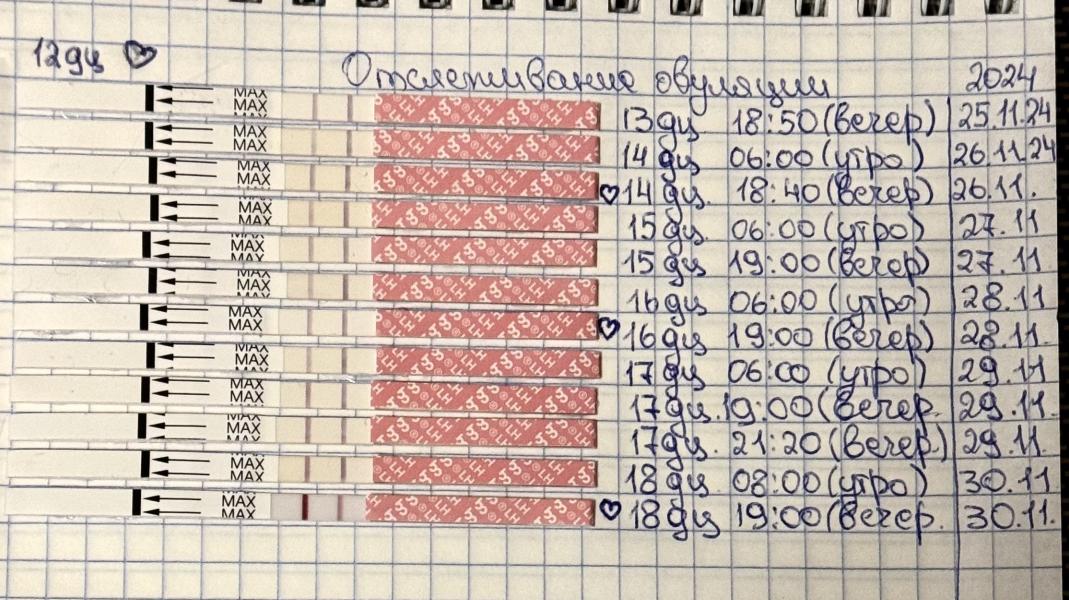 12дц ♡
Отслеживание овуляции 2024
MAX MAX 13дц 18:50 (вечер) 25.11.24
MAX MAX 14дц 06:00 (утро) 26.11.24
MAX MAX ♡14дц 18:40 (вечер) 26.11.
MAX MAX 15дц 06:00 (утро) 27.11
MAX MAX 15дц 19:00 (вечер) 27.11
MAX MAX 16дц 06:00 (утро) 28.11
MAX MAX ♡16дц 19:00 (вечер) 28.11.
MAX MAX 17дц 06:00 (утро) 29.11
MAX MAX 17дц. 19:00 (вечер. 29.11.
MAX MAX 17дц. 21:20 (вечер.) 29.11.
MAX MAX 18дц 08:00 (утро) 30.11
MAX MAX ♡ 18дц 19:00 (вечер. 30.11.